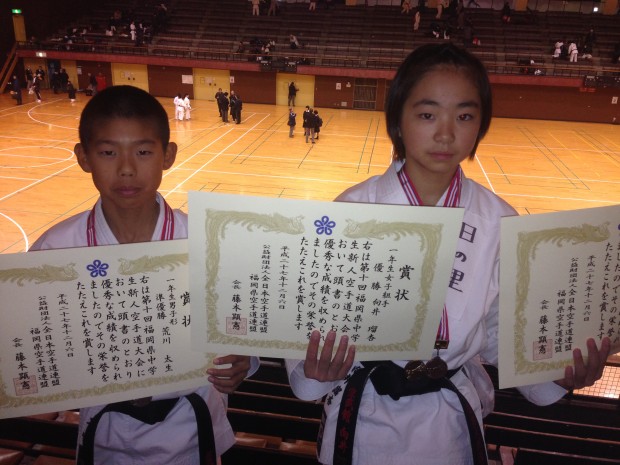 一年生男子形
準優勝 荒川 太生
右は第十回福岡県中学
生新人空手道大会に
おいて頭書のとおり
優秀な成績を収められ
ましたのでその栄誉を
たたえこれを賞します
平成二十七年十二月六日
公益財団法人全日本空手道連盟
福岡県空手道連盟
会長 藤木顕憲
賞状
一年生女子組手
優勝 向井 瑠杏
右は第十回福岡県中学
生新人空手道大会に
おいて頭書のとおり
優秀な成績を収められ
ましたのでその栄誉を
たたえこれを賞します
平成二十七年十二月六日
公益財団法人全日本空手道連盟
福岡県空手道連盟
会長 藤木顕憲
日の里
平成二十七年十二月六日
公益財団法人全日本空手道連盟
福岡県空手道連盟
会長 藤木顕憲